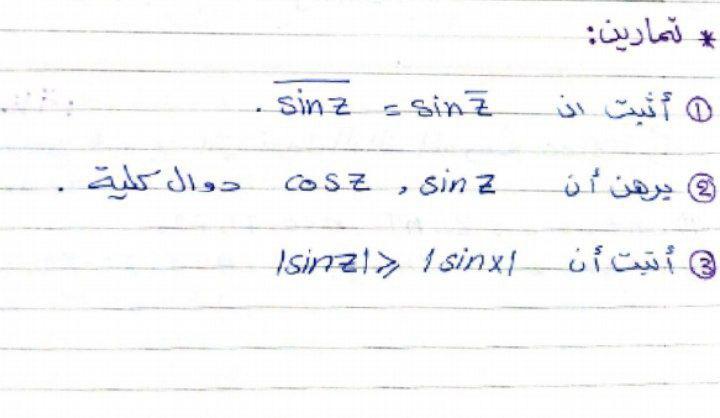 * تمارين:
① أثبت ان $\overline{\sin z} = \sin \overline{z}$ .
② برهن أن cosz , sinz دوال كلية .
③ أثبت أن |sinz| ⩾ |sinx|